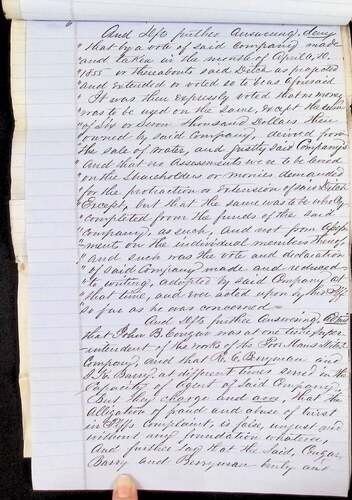 6
And Defts further Answering, deny
" that by a vote of said Company made
" and taken in the month of April A.D.
" 1855 or thereabouts said Ditch as proposed
" and extended or voted so to be as aforesaid
" It was then expressly voted that no money
" was to be used on the same, except the sum
" of six or seven thousand Dollars then
" owned by said Company, derived from
" the sale of water, and justly said Company's
" And that no Assessments were to be levied
" on the Shareholders or monies demanded
" for the protraction or extension of said Ditch
" Except, but that the same was to be wholly
" completed from the funds of the said
" Company, as such, and not from Assess
" ments on the individual members thereof
" and such was the vote and declaration
" of said Company made and reduced
" to writing, adopted by said Company at
" that time, and ever acted upon by this
" so far as he was concerned —
And Defts further Answering,
that John B. was at one time Super
intendent of the works of the Poor Mans
Company, and that R. C. Berryman and
Barry, at different times served in the
Capacity of Agent of said Company
But they charge and aver, that the
Allegation of fraud and abuse of trust
in Plffs Complaint, is false, unjust and
without any foundation whatever,
And further say that the said,
Barry and Berryman truly and